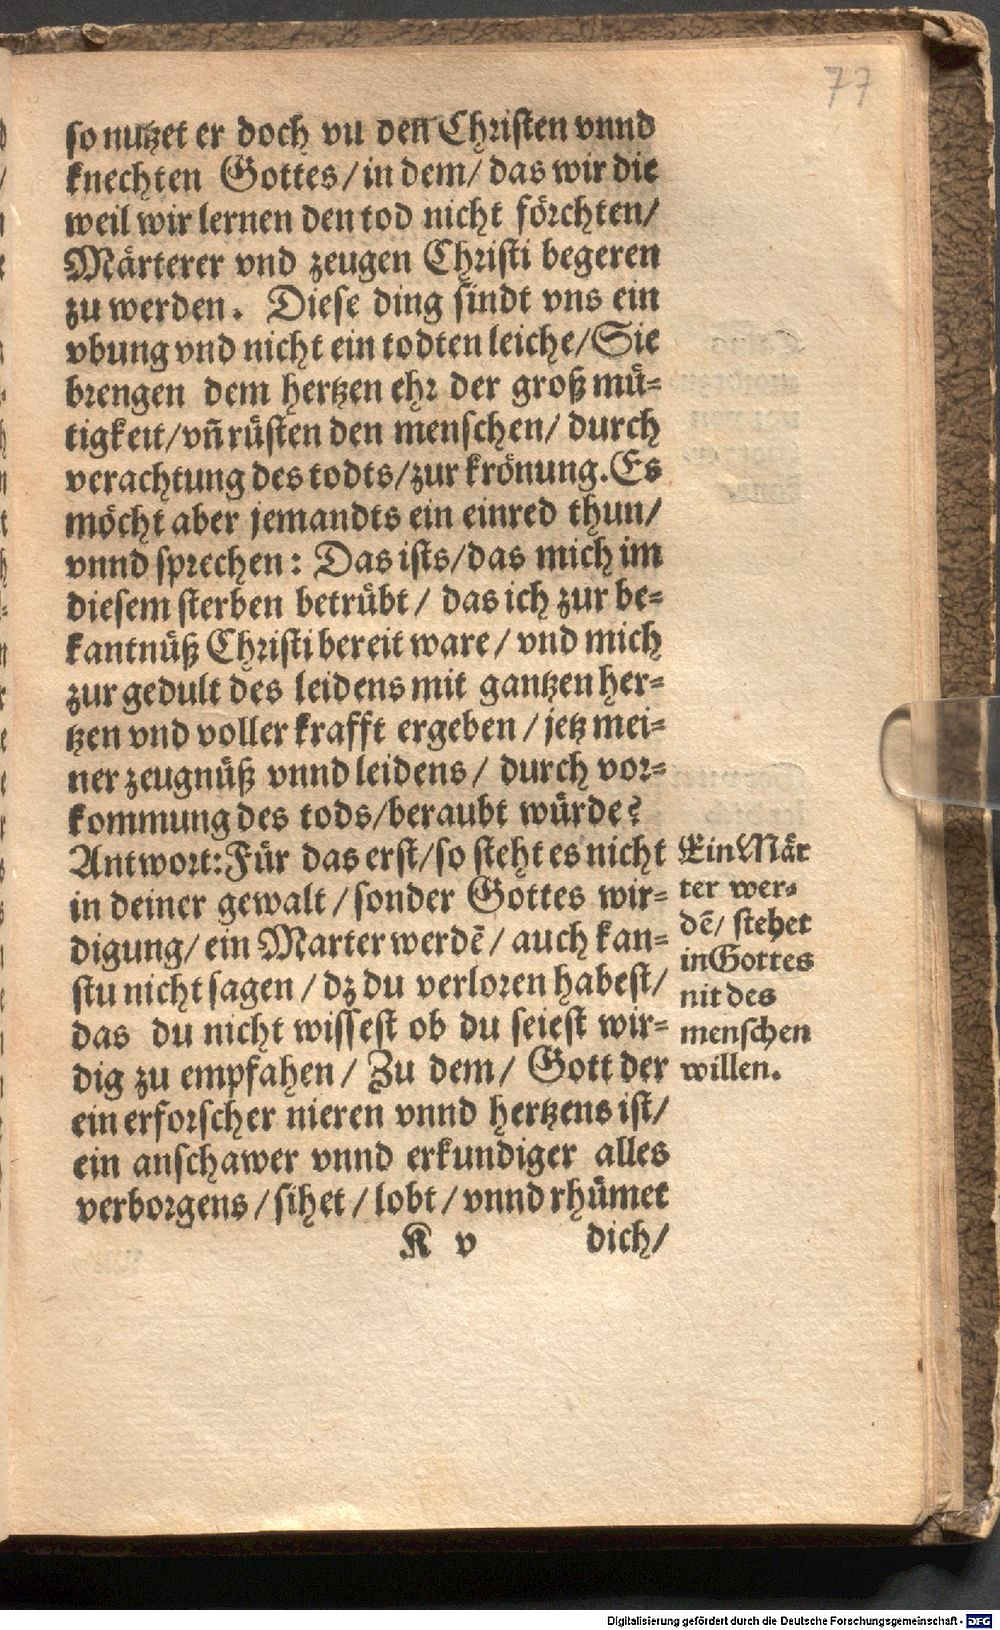 77
so nutzet er doch vn den Christen vnnd
knechten Gottes/ in dem/ das wir die
weil wir lernen den tod nicht förchten/
Märterer vnd zeugen Christi begeren
zu werden. Diese ding sindt vns ein
vbung vnd nicht ein todten leiche/ Sie
brengen dem hertzen ehr der großmü-
tigkeit/ vñ rüsten den menschen/ durch
verachtung des todts/ zur krönung. Es
möcht aber jemandts ein einred thun/
vnnd sprechen: Das ists/ das mich im
diesem sterben betrübt/ das ich zur be-
kantnüß Christi bereit ware/ vnd mich
zur gedult des leidens mit gantzen her-
tzen vnd voller krafft ergeben/ jetz mei-
ner zeugnüß vnnd leidens/ durch vor-
kommung des tods/ beraubt würde?
Antwort: Für das erst/ so steht es nicht
in deiner gewalt/ sonder Gottes wir-
digung/ ein Marter werdē/ auch kan-
stu nicht sagen/ dz du verloren habest/
das du nicht wissest ob du seiest wir-
dig zu empfahen/ Zu dem/ Gott der
ein erforscher nieren vnnd hertzens ist/
ein anschawer vnnd erkundiger alles
verborgens/ sihet/ lobt/ vnnd rhümet
K v dich/
Ein Mär
ter wer-
dē/ stehet
in Gottes
nit des
menschen
willen.
Digitalisierung gefördert durch die Deutsche Forschungsgemeinschaft - DFG